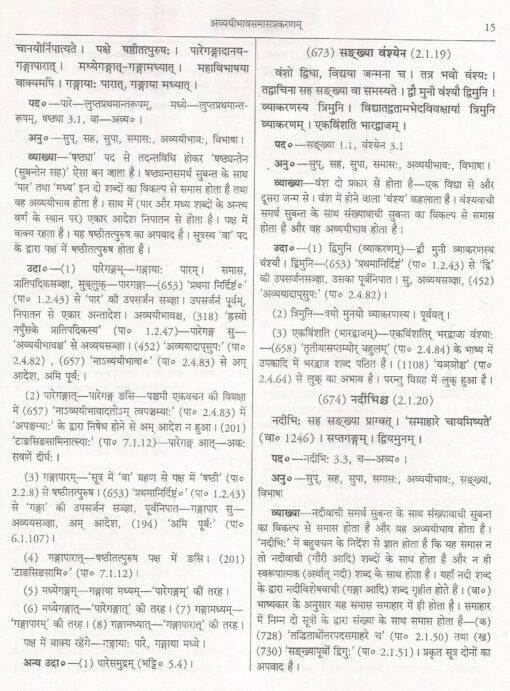 अव्ययीभावसमासप्रकरणम्
15
चानयोर्निपात्यते। पक्षे षष्ठीतत्पुरुषः। पारेगङ्गादानय-
गङ्गापारात्। मध्येगङ्गात्-गङ्गामध्यात्। महाविभाषया
वाक्यमपि। गङ्गायाः पारात्, गङ्गाया मध्यात्।
पद०—पारे—लुप्तप्रथमान्तरूपम्, मध्ये—लुप्तप्रथमान्त-
रूपम्, षष्ठ्या 3.1, वा—अव्य०।
अनु०—सुप्, सह, सुपा, समासः, अव्ययीभावः, विभाषा।
व्याख्या—'षष्ठ्या' पद से तदन्तविधि होकर 'षष्ठ्यन्तेन
(सुबन्तेन सह)' ऐसा बन जाता है। षष्ठ्यन्तसमर्थ सुबन्त के साथ
'पार' तथा 'मध्य' इन दो शब्दों का विकल्प से समास होता है तथा
वह अव्ययीभाव होता है। साथ में (पार और मध्य शब्दों के अन्त्य
वर्ण के स्थान पर) एकार आदेश निपातन से होता है। पक्ष में
वाक्य रहता है। यह षष्ठीतत्पुरुष का अपवाद है। सूत्रस्थ 'वा' पद
के द्वारा पक्ष में षष्ठीतत्पुरुष होता है।
उदा०—(1) पारेगङ्गम्—गङ्गायाः पारम्। समास,
प्रातिपदिकसञ्ज्ञा, सुब्लुक्—पारगङ्गा—(653) 'प्रथमा निर्दिष्टं०'
(पा० 1.2.43) से 'पार' की उपसर्जन संज्ञा। उपसर्जनं पूर्वम्,
निपातन से एकार अन्तादेश। अव्ययीभावश्च, (318) 'ह्रस्वो
नपुंसके प्रातिपदिकस्य' (पा० 1.2.47)—पारेगङ्ग सु—
'अव्ययीभावश्च' से अव्ययसञ्ज्ञा। (452) 'अव्ययादाप्सुपः' (पा०
2.4.82), (657) 'नाऽव्ययीभावा०' (पा० 2.4.83) से अम्
आदेश, अमि पूर्वः।
(2) पारेगङ्गात्—पारेगङ्ग ङसि—पञ्चमी एकवचन की विवक्षा
में (657) 'नाऽव्ययीभावादतोऽम् त्वपञ्चम्याः' (पा० 2.4.83) में
'अपञ्चम्याः' के द्वारा निषेध होने से अम् आदेश न हुआ। (201)
'टाङसिङसामिनात्स्याः' (पा० 7.1.12)—पारेगङ्ग आत्—अकः
सवर्णे दीर्घः।
(3) गङ्गापारम्—'सूत्र में 'वा' ग्रहण से पक्ष में 'षष्ठी' (पा०
2.2.8) से षष्ठीतत्पुरुष। (653) 'प्रथमानिर्दिष्टं०' (पा० 1.2.43)
से 'गङ्गा' की उपसर्जन सञ्ज्ञा, पूर्वनिपात—गङ्गापार सु—
अव्ययसञ्ज्ञा, अम् आदेश, (194) 'अमि पूर्वः' (पा०
6.1.107)।
(4) गङ्गापारात्—षष्ठीतत्पुरुष पक्ष में ङसि। (201)
'टाङसिङसामि०' (पा० 7.1.12)।
(5) मध्येगङ्गम्—गङ्गाया मध्यम्—'पारेगङ्गम्' की तरह।
(6) मध्येगङ्गात्—'पारेगङ्गात्' की तरह। (7) गङ्गामध्यम्—
'गङ्गापारम्' की तरह। (8) गङ्गामध्यात्—'गङ्गापारात्' की तरह।
पक्ष में वाक्य रहेंगे—गङ्गायाः पारे, गङ्गाया मध्ये।
अन्य उदा०—(1) पारेसमुद्रम् (भट्टि० 5.4)।
(673) सङ्ख्या वंश्येन (2.1.19)
वंशो द्विधा, विद्यया जन्मना च। तत्र भवो वंश्यः।
तद्वाचिना सह सङ्ख्या वा समस्यते। द्वौ मुनी वंश्यौ द्विमुनि।
व्याकरणस्य त्रिमुनि। विद्यातद्वतामभेदविवक्षायां त्रिमुनि
व्याकरणम्। एकविंशति भारद्वाजम्।
पद०—सङ्ख्या 1.1, वंश्येन 3.1
अनु०—सुप्, सह, सुपा, समासः, अव्ययीभावः, विभाषा।
व्याख्या—वंश दो प्रकार से होता है—एक विद्या से और
दूसरा जन्म से। वंश में होने वाला 'वंश्य' कहलाता है। वंश्यवाची
समर्थ सुबन्त के साथ संख्यावाची सुबन्त का विकल्प से समास
होता है और वह अव्ययीभाव होता है।
उदा०—(1) द्विमुनि (व्याकरणम्)—द्वौ मुनी व्याकरणस्य
वंश्यौ। द्विमुनि—(653) 'प्रथमानिर्दिष्टं' (पा० 1.2.43) से 'द्वि'
की उपसर्जनसञ्ज्ञा, उसका पूर्वनिपात। सु, अव्ययसञ्ज्ञा, (452)
'अव्ययादाप्सुपः' (पा० 2.4.82)।
(2) त्रिमुनि—त्रयो मुनयो व्याकरणस्य। पूर्ववत्।
(3) एकविंशति (भारद्वाजम्)—एकविंशतिर् भरद्वाजा वंश्याः
—(658) 'तृतीयासप्तम्योर् बहुलम्' (पा० 2.4.84) के भाष्य में
उपकादि में भरद्वाज शब्द पठित है। (1108) 'यञञोश्च' (पा०
2.4.64) से लुक् का अभाव है। परन्तु विग्रह में लुक् हुआ है।
(674) नदीभिश्च (2.1.20)
नदीभिः सह सङ्ख्या प्राग्वत्। 'समाहारे चायमिष्यते'
(वा० 1246)। सप्तगङ्गम्। द्वियमुनम्।
पद०—नदीभिः 3.3, च—अव्य०।
अनु०—सुप्, सह, सुपा, समासः, अव्ययीभावः, सङ्ख्या,
विभाषा
व्याख्या—नदीवाची समर्थ सुबन्त के साथ संख्यावाची सुबन्त
का विकल्प से समास होता है और यह अव्ययीभाव होता है।
'नदीभिः' में बहुवचन के निर्देश से ज्ञात होता है कि यह समास न
तो नदीवाची (गौरी आदि) शब्दों के साथ होता है और न ही
स्वरूपात्मक (अर्थात् नदी) शब्द के साथ होता है। यहाँ नदी शब्द
के द्वारा नदीविशेषवाची (गङ्गा आदि) शब्द गृहीत होते हैं। (वा०)
भाष्यकार के अनुसार यह समास समाहार में ही होता है। समाहार
में निम्न दो सूत्रों के द्वारा संख्या के साथ समास होता है—(क)
(728) 'तद्धितार्थोत्तरपदसमाहारे च' (पा० 2.1.50) तथा (ख)
(730) 'सङ्ख्यापूर्वो द्विगुः' (पा० 2.1.51)। प्रकृत सूत्र दोनों का
अपवाद है।